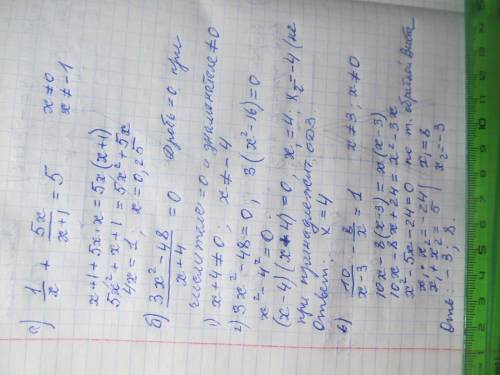 а) 1/x + 5x/x+1 = 5   x≠0
x≠-1
x+1+5x·x=5x(x+1)
5x²+x+1=5x²+5x
4x=1; x=0,25
б) 3x²-48/x+4 = 0 Дробь=0 при
числителе=0 и знаменателе≠0
1) x+4≠0, x≠-4
2) 3x²-48=0; 3(x²-16)=0
x²-4²=0
(x-4)(x+4)=0, x₁=4; x₂=-4 (не
принадлежит ОДЗ
Ответ: x=4
в) 10/x-3 - 8/x = 1 x≠3; x≠0
10x-8(x-3)=x(x-3)
10x-8x+24=x²-3x
x²-5x-24=0 по т. обратной Виета
x₁·x₂=-24 | x₁=8
x₁+x₂=5 | x₂=-3
Отв: -3; 8.